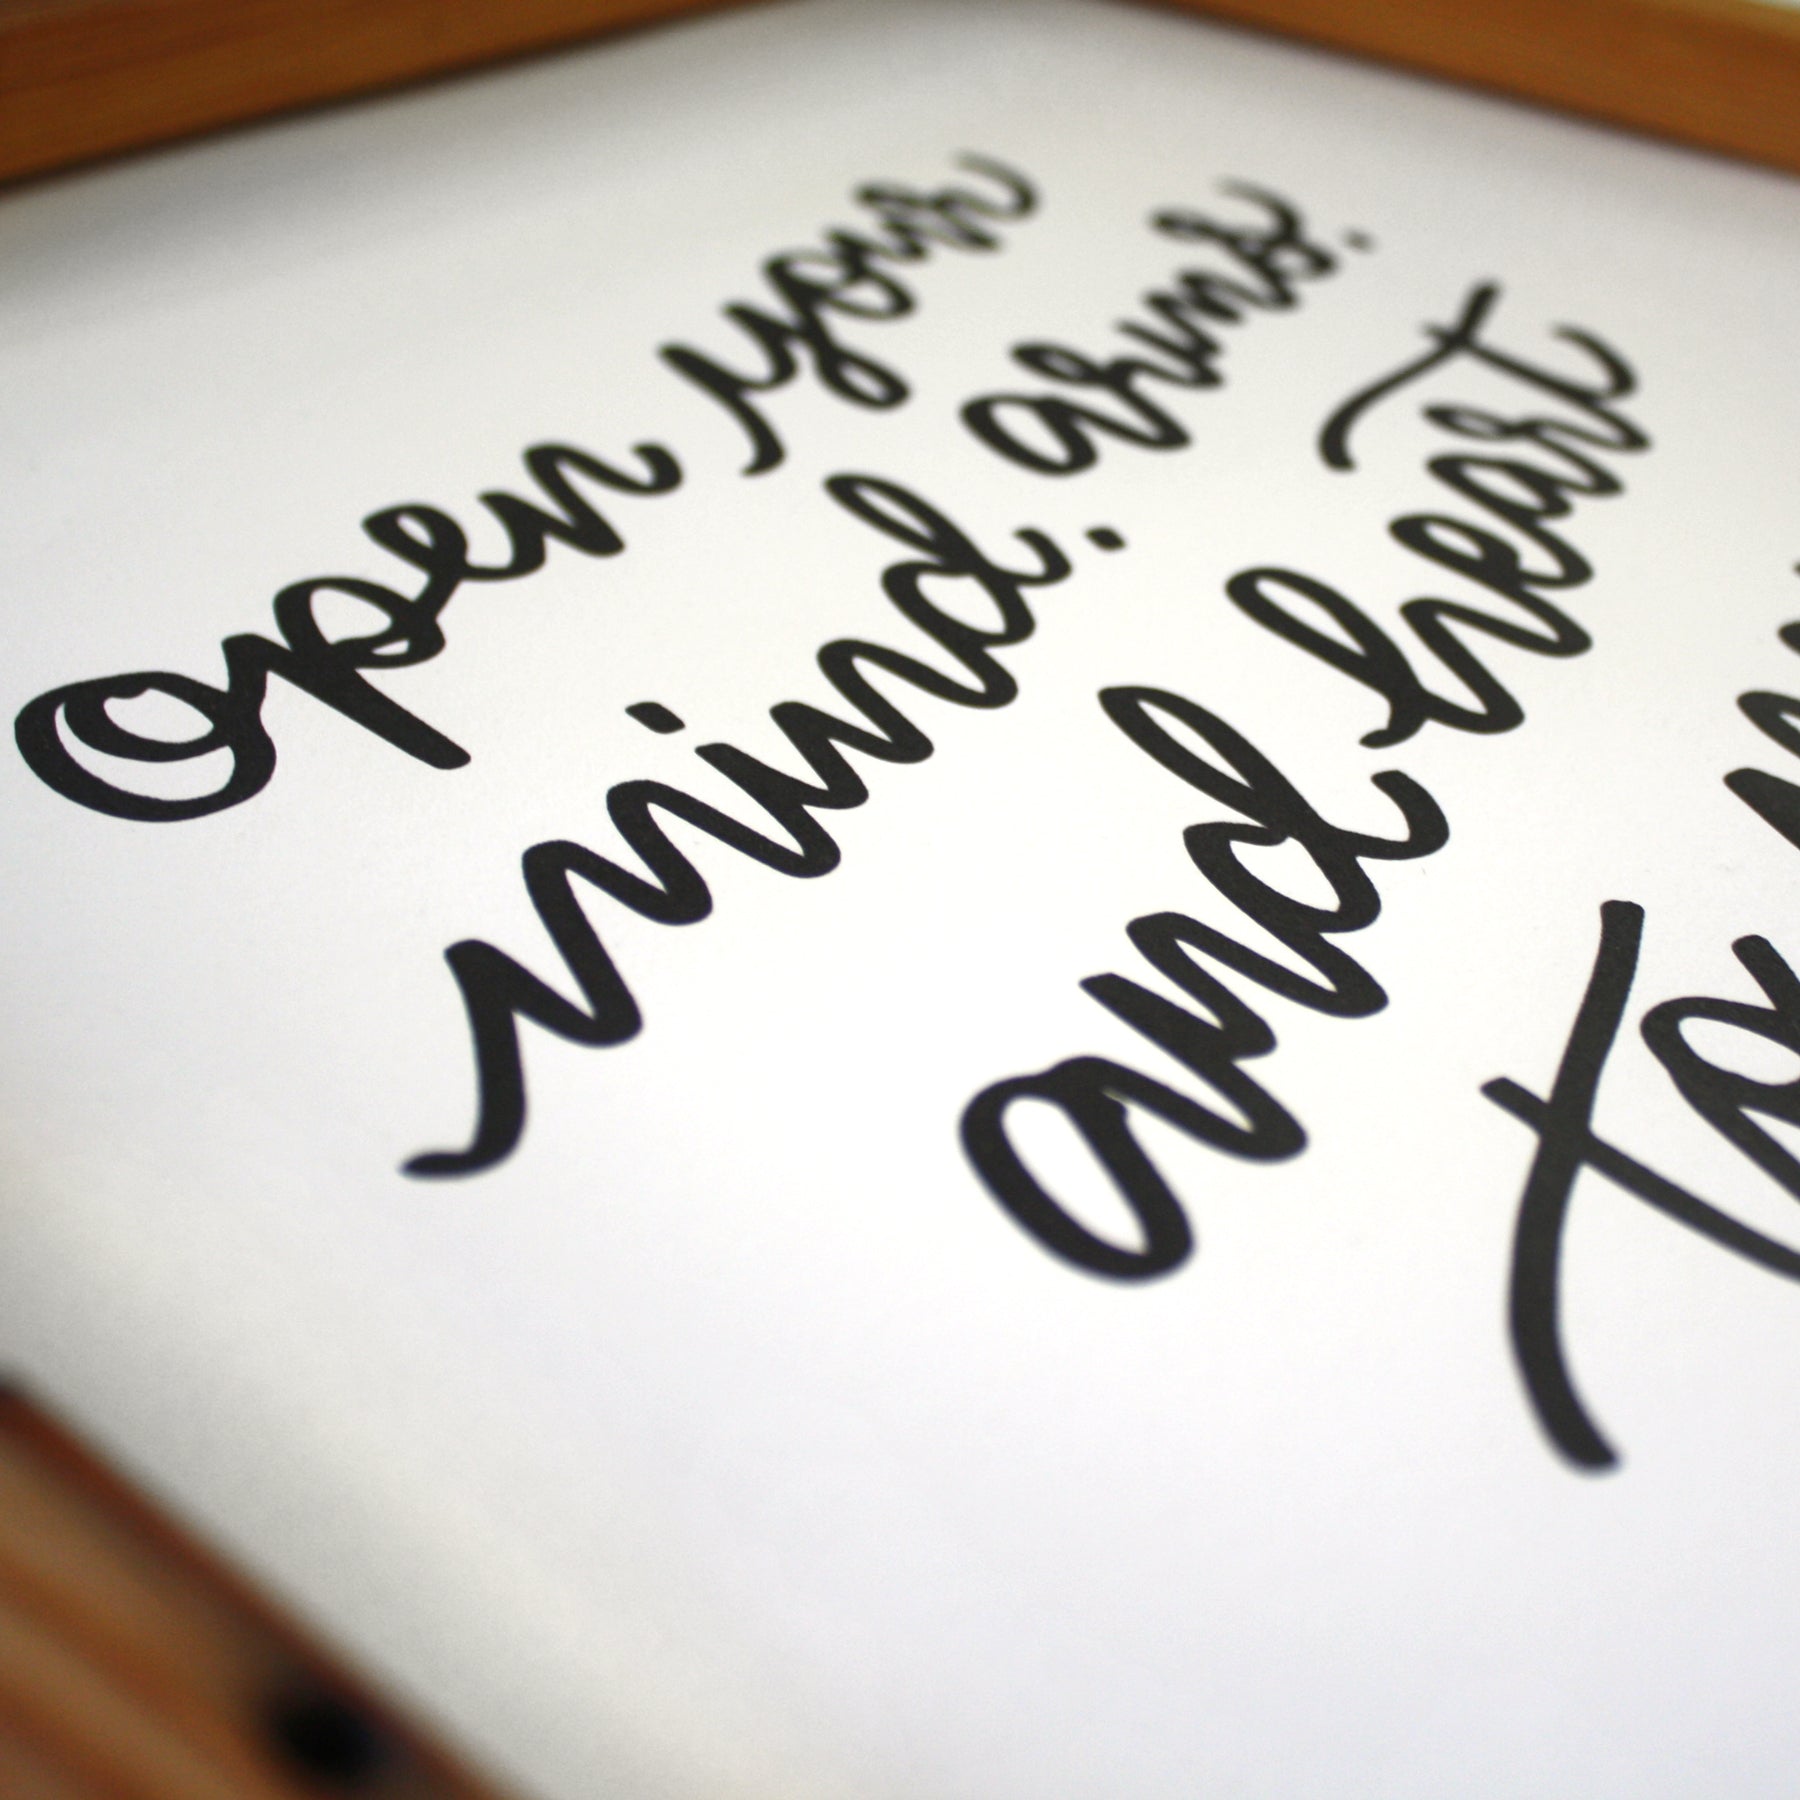 Open your
mind. arms.
and heart
to